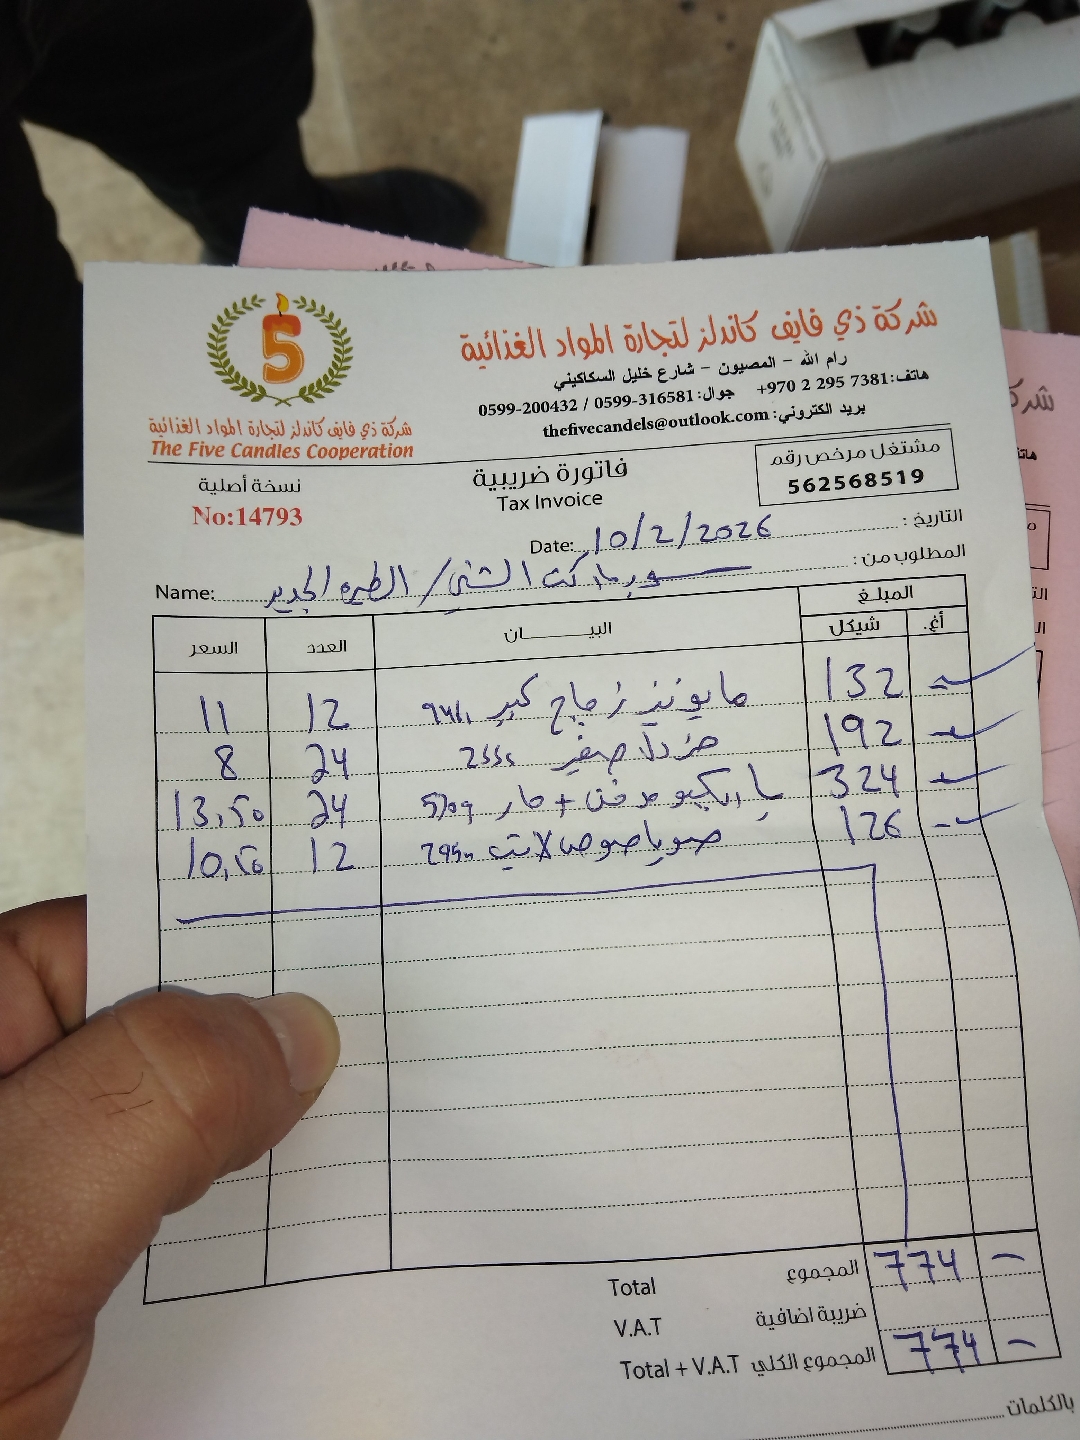 5
شركة ذي فايف كاندلز لتجارة المواد الغذائية
The Five Candles Cooperation
شركة ذي فايف كاندلز لتجارة المواد الغذائية
رام الله - المصيون - شارع خليل السكاكيني
هاتف: +970 2 295 7381 جوال: 0599-316581 / 0599-200432
بريد الكتروني: thefivecandels@outlook.com
نسخة أصلية
No:14793
فاتورة ضريبية
Tax Invoice
مشتغل مرخص رقم
562568519
التاريخ : Date: 10/2/2026
المطلوب من : Name: سوبرماركت الشني / الطيره الجديد
المبلغ
أغ. شيكل البيـــــــان العدد السعر
- 132 مايونيز زجاج كبير 12 11
- 192 خردل صغير 24 8
- 324 باربكيو مدخن + حار 24 13,50
- 126 صويا صوص لايت 12 10,50
المجموع Total 774 -
ضريبة اضافية V.A.T
المجموع الكلي Total + V.A.T 774 -
بالكلمات
شرك